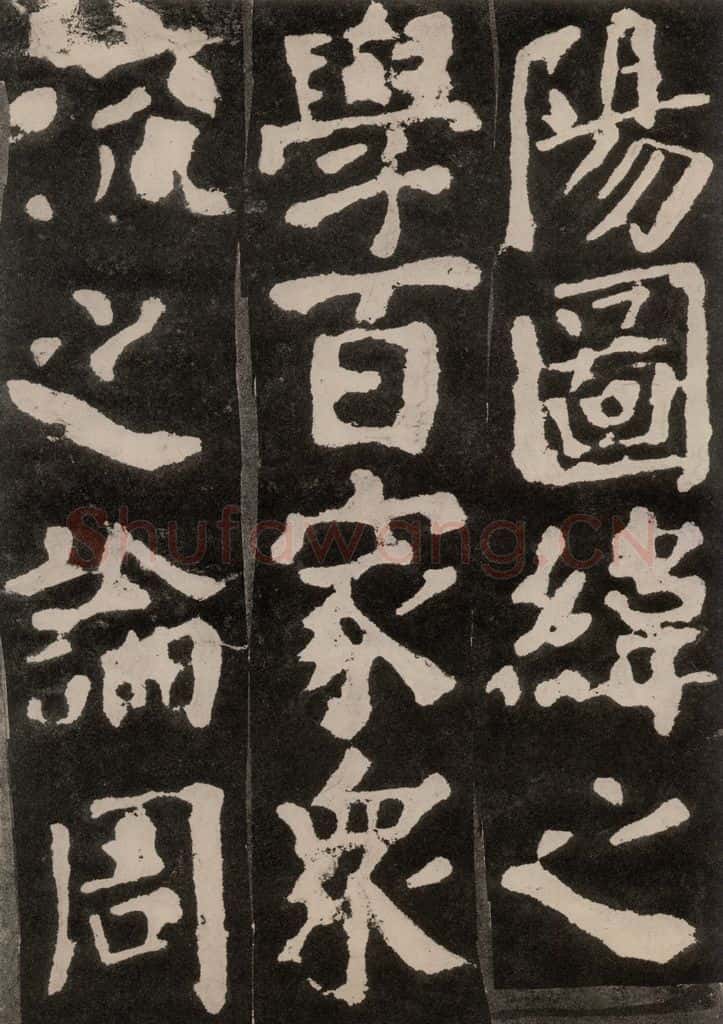 陽圖緯之
學百家衆
流之論周
Shufawang.CN